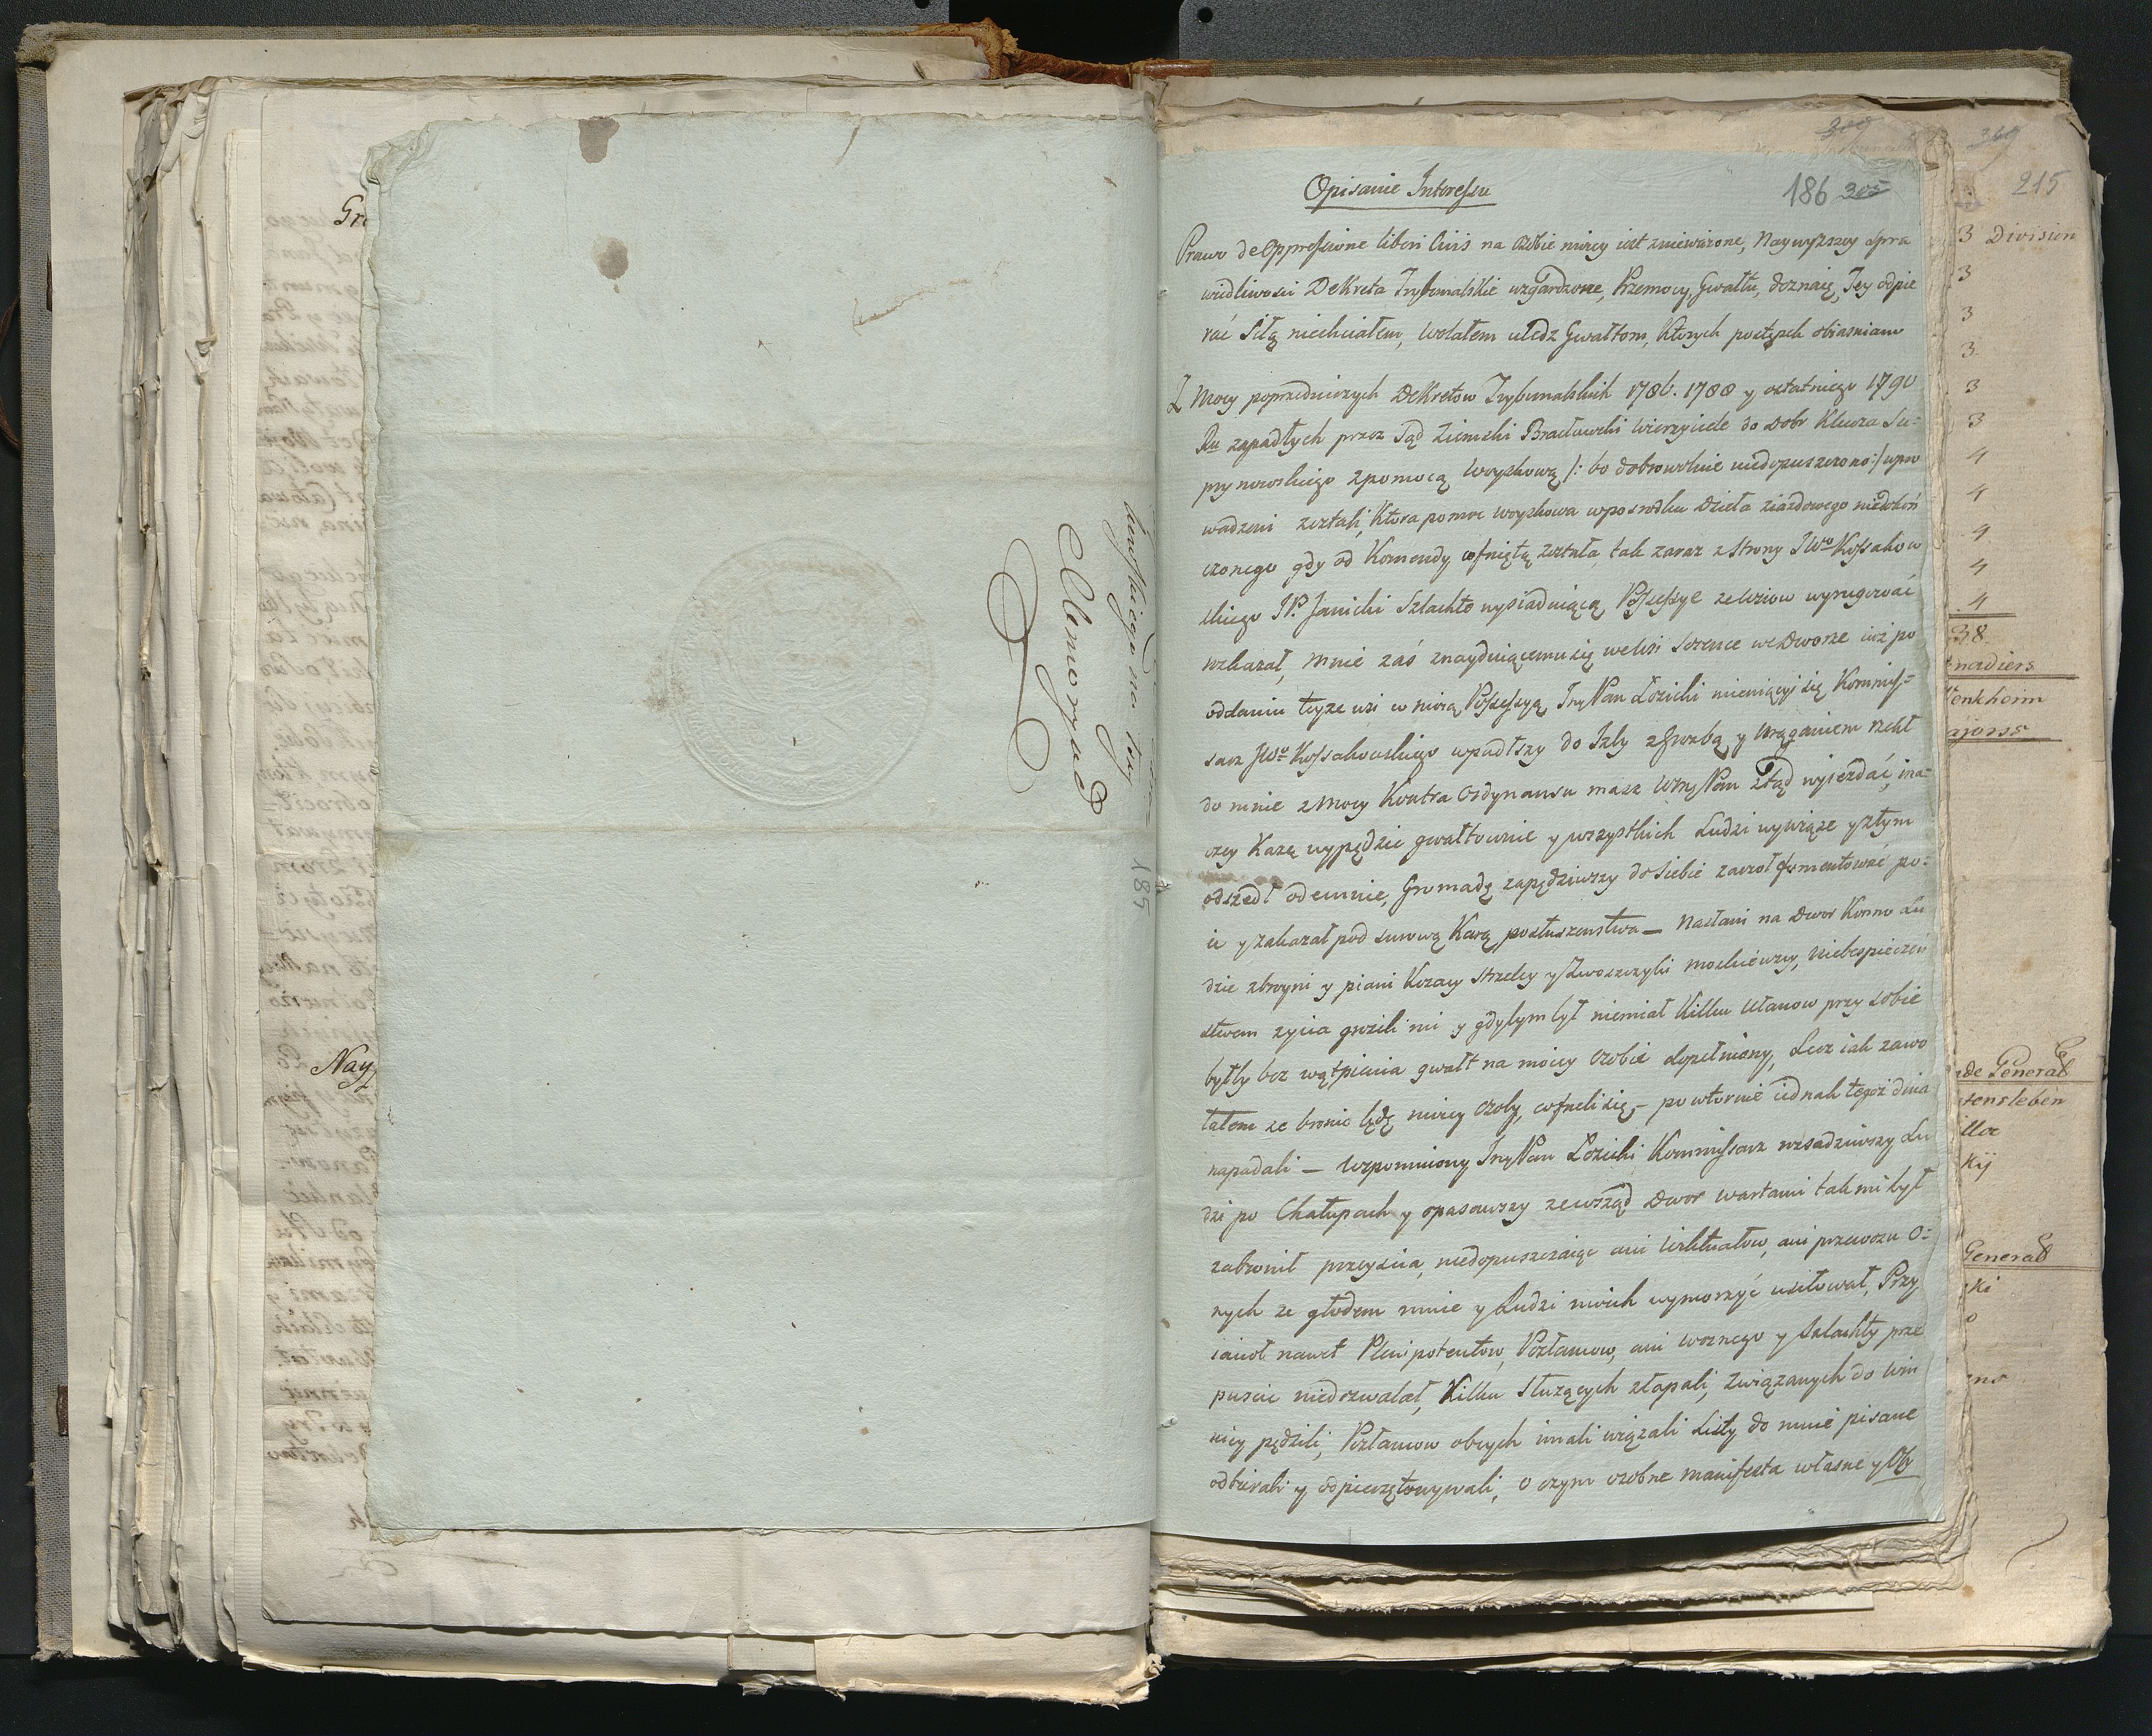 Memoryał
185
309
186 305
Opisanie Interessu
Prawo de Oppressione liberi Civis na osobie moiey iest znieważone, Naywyższey Spra
wiedliwości Dekreta Trybunalskie wzgardzone, Przemocy, Gwałtu, doznaię, Jey odpie
rać Siłą niechciałem, wolałem uledz Gwałtom, Których postępek obiasniam
Z Mocy poprzedniczych Dekretow Trybunalskich 1786. 1788 y ostatniego 1790
Ru zapadłych przez Sąd Ziemski Bracławski Wierzyciele do Dobr Klucza Su-
prynowskiego z pomocą woyskową /: bo dobrowolnie niedopuszczono :/ upro
wadzeni zostali, Ktora pomoc woyskowa wposrodku Dzieła ziazdowego niedokoń
czonego gdy od Komendy cofniętą została, tak zaraz z strony JWo Kossakow
skiego JP. Janicki Szlachtę wysiaduiącą Possessye zewsiow wyrugować
wskazał, mnie zaś znayduiącemu się we Wsi we Dworze iuż po
oddaniu teyże wsi w moią Possessyą JmPan Łozicki mieniący się Kommis-
sarz JWo Kossakowskiego wpadłszy do Izby z groźbą y urąganiem rzekł
do mnie z mocy Kontra Ordynansu masz WmPan ztąd wyjezdać, ina-
czey Każę wypędzić gwałtownie y wszystkich Ludzi wywiąże y z tym
odszedł odemnie, Gromadę zapędziwszy do siebie zaczoł fomentować po-
ić y zakazał pod surową Karą posłuszenstwa — Nasłani na Dwor Konno Lu
dzie zbroyni y piani Kozacy strzelcy y moskiewscy, Niebespieczeń
stwem życia grozili mi y gdybym był niemiał Kilku Ułanow przy sobie
byłby bez wątpienia gwałt na moiey osobie dopełniony, Lecz iak zawo
łałem że bronić będę moiey osoby, cofneli się, — powtornie iednak tegoż dnia
napadali — Wspomniony JmPan Łozicki Kommissarz wsadziwszy Lu
dzi po Chałupach y opasawszy zewsząd Dwor wartami tak mi był
zabronił przeyscia, niedopuszczaiąc ani Wiktuałow, ani przewozu O-
nych że głodem mnie y Ludzi moich wymorzyć usiłował, Przy
iacioł nawet Plenipotentow, Posłancow, ani woznego y szlachty prze
puscić niedozwalał, Kilku Służących złapali, związanych do Win
nicy pędzili, Posłancow obcych imali wiązali Listy do mnie pisane
odbierali y odpieczętowywali, o czym osobne manifesta własne y Ob
369
215
3 Division
3
3
3
3
3
4
4
4
4
4
38
General
General